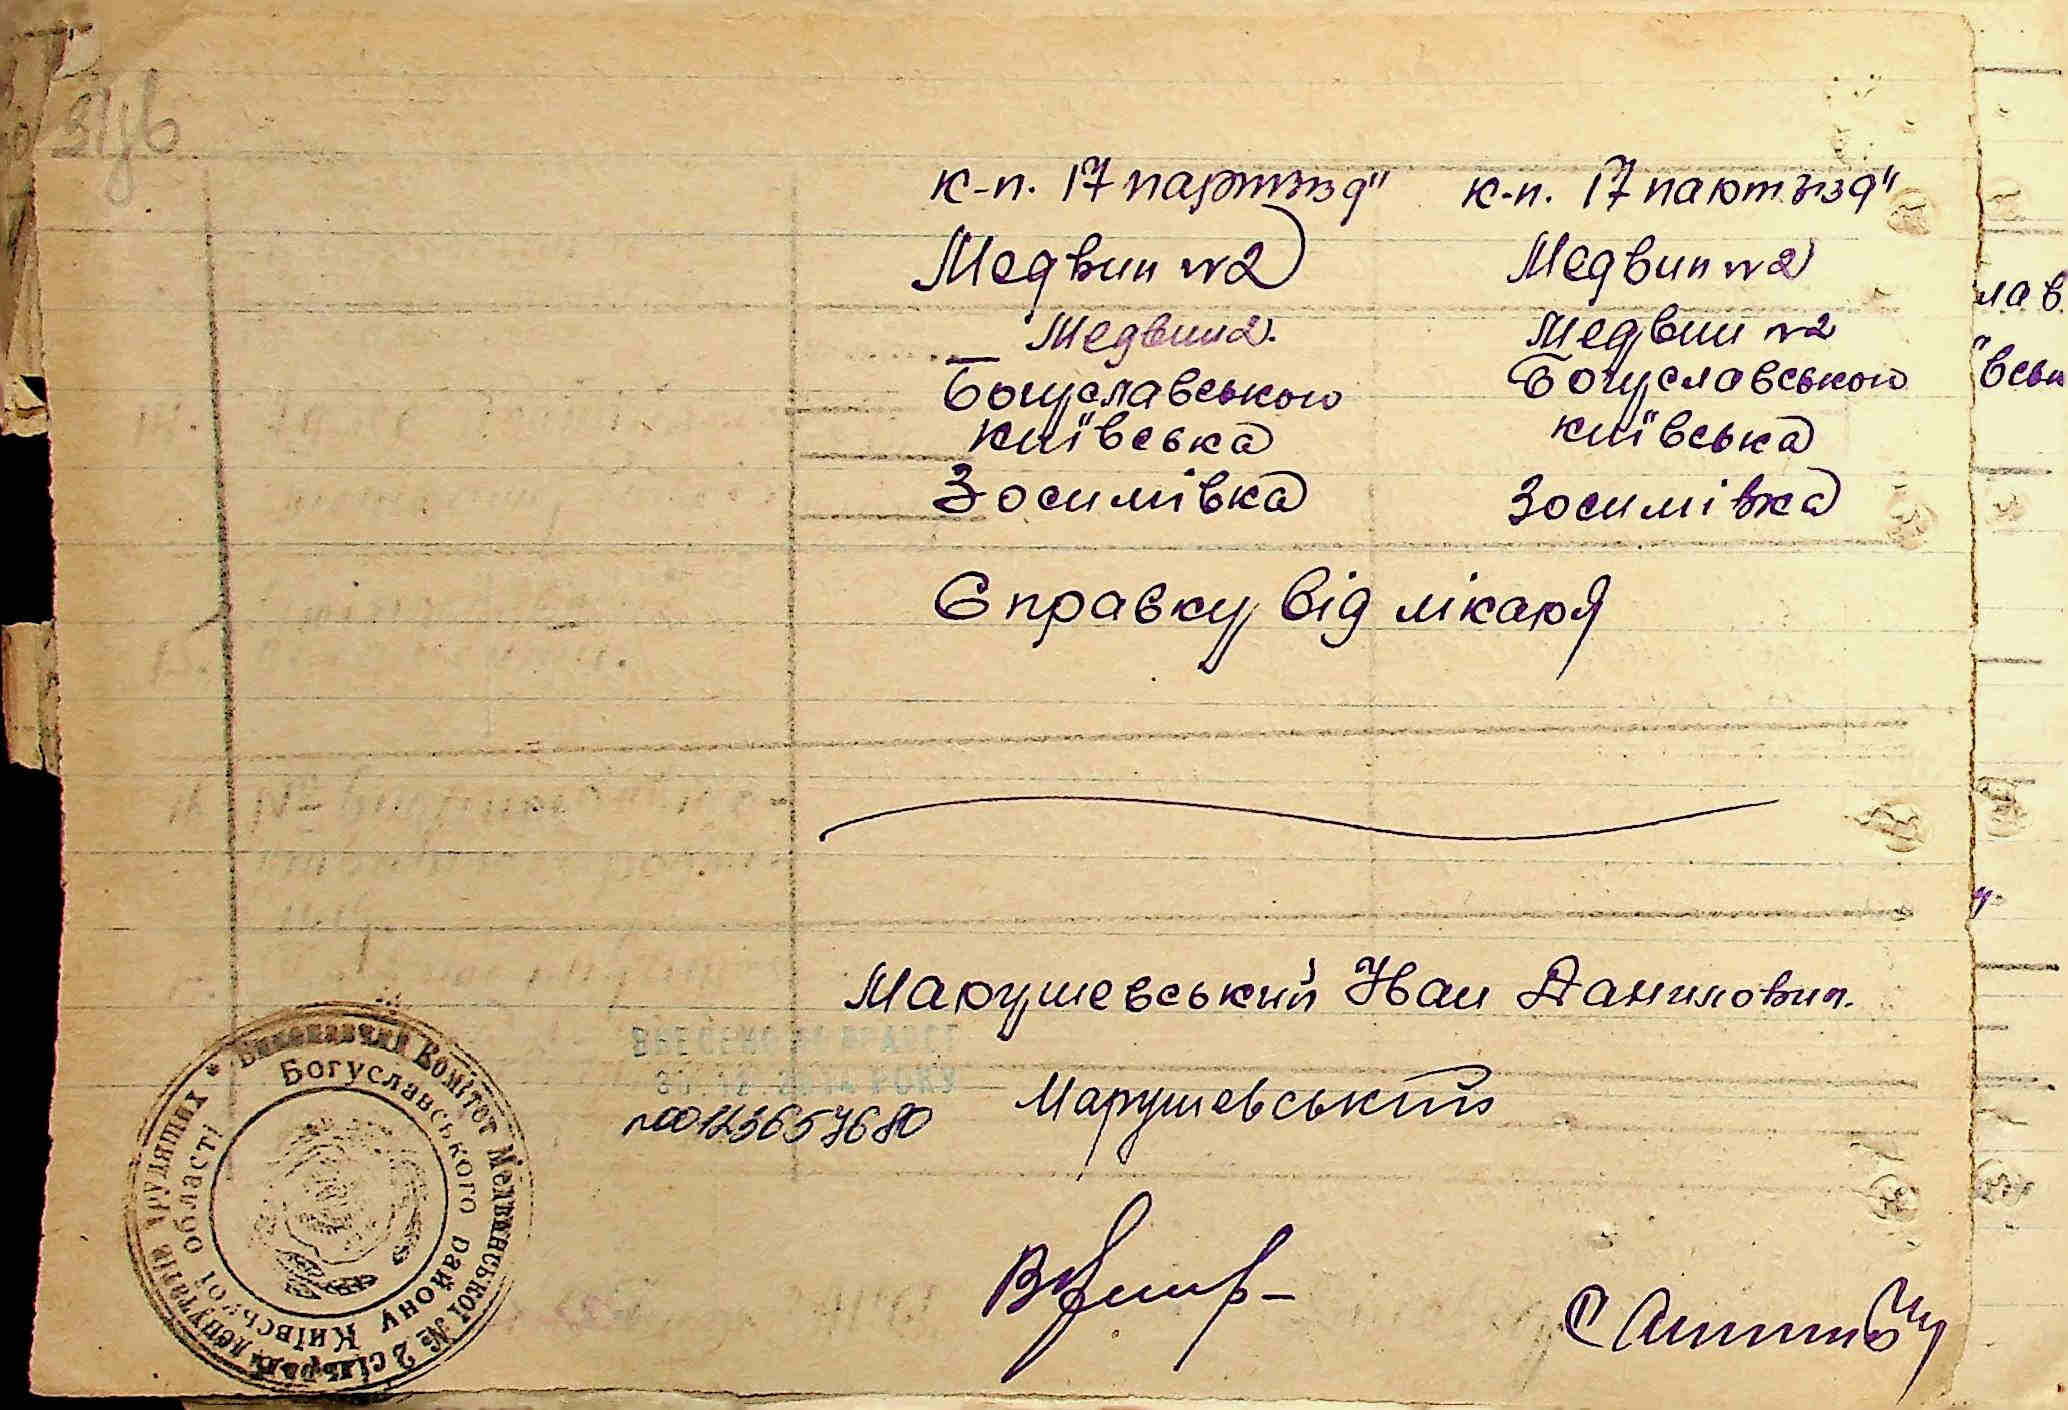 к-п. 17 партззд" к-п. 17 партззд"
Медвин №2 Медвин №2
Медвин 2. Медвин №2
Богуславського Богуславського
київська київська
Зосимівка Зосимівка
Справку від лікаря
Марушевський Іван Данилович.
ВНЕСЕНО
РОКУ
№00123657680 Марушевський
* Виконавчий Комітет Медвинської № 2 сільради депутатів трудящих
Богуславського району Київської області
лав.